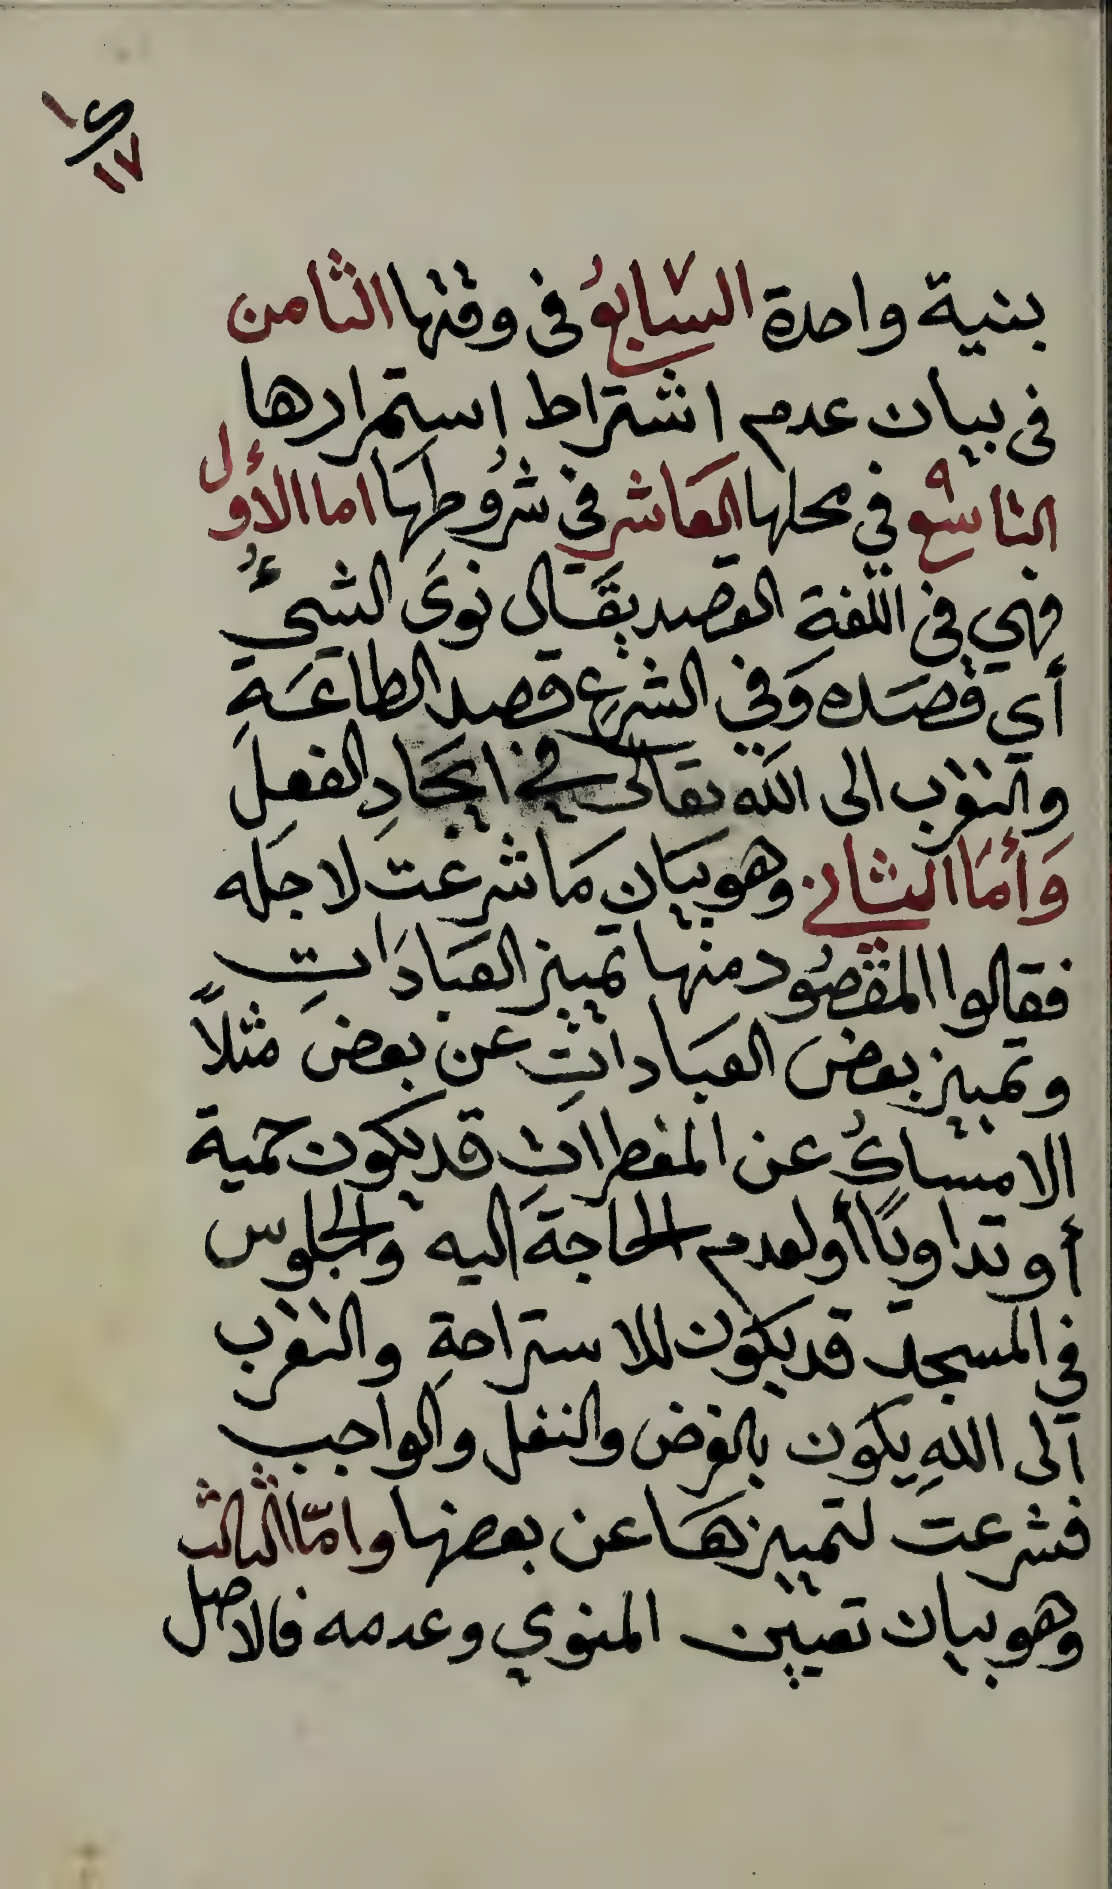 ١٧
بنية واحدة السابعُ ٧ فى وقتها الثامن
فى بيان عدم اشتراط إستمرارها
التاسع ٩ في محلها العَاشر في شرُوطهَا اما الأول
فهي في اللّغةِ القصد يقَال نوىَ الشيءُ
أي قصَده وَفي الشرع قصد الطاعَةِ
والتقرب الى الله تعالى في ايجَادِ الفعل
وَأمَا الثاني وهو بيَان مَا شرعت لاجله
فقالوا المقصُود منها تمييز العبادَاتِ
وتمييز بعض العباداتِ عن بعض مثلاً
الامساكُ عن المفطرات قد يكون حمية
أو تداويًا أو لعدم الحاجةَ اليه والجلوس
في المسجد قد يكون للاستراحةِ والتقرب
الى اللهِ يكون بالفرض والنفل والواجب
فشرعت لتمييزهَا عن بعضها وامّا الثالث
وهو بيان تعيين المنوي وعدمه فالاصل